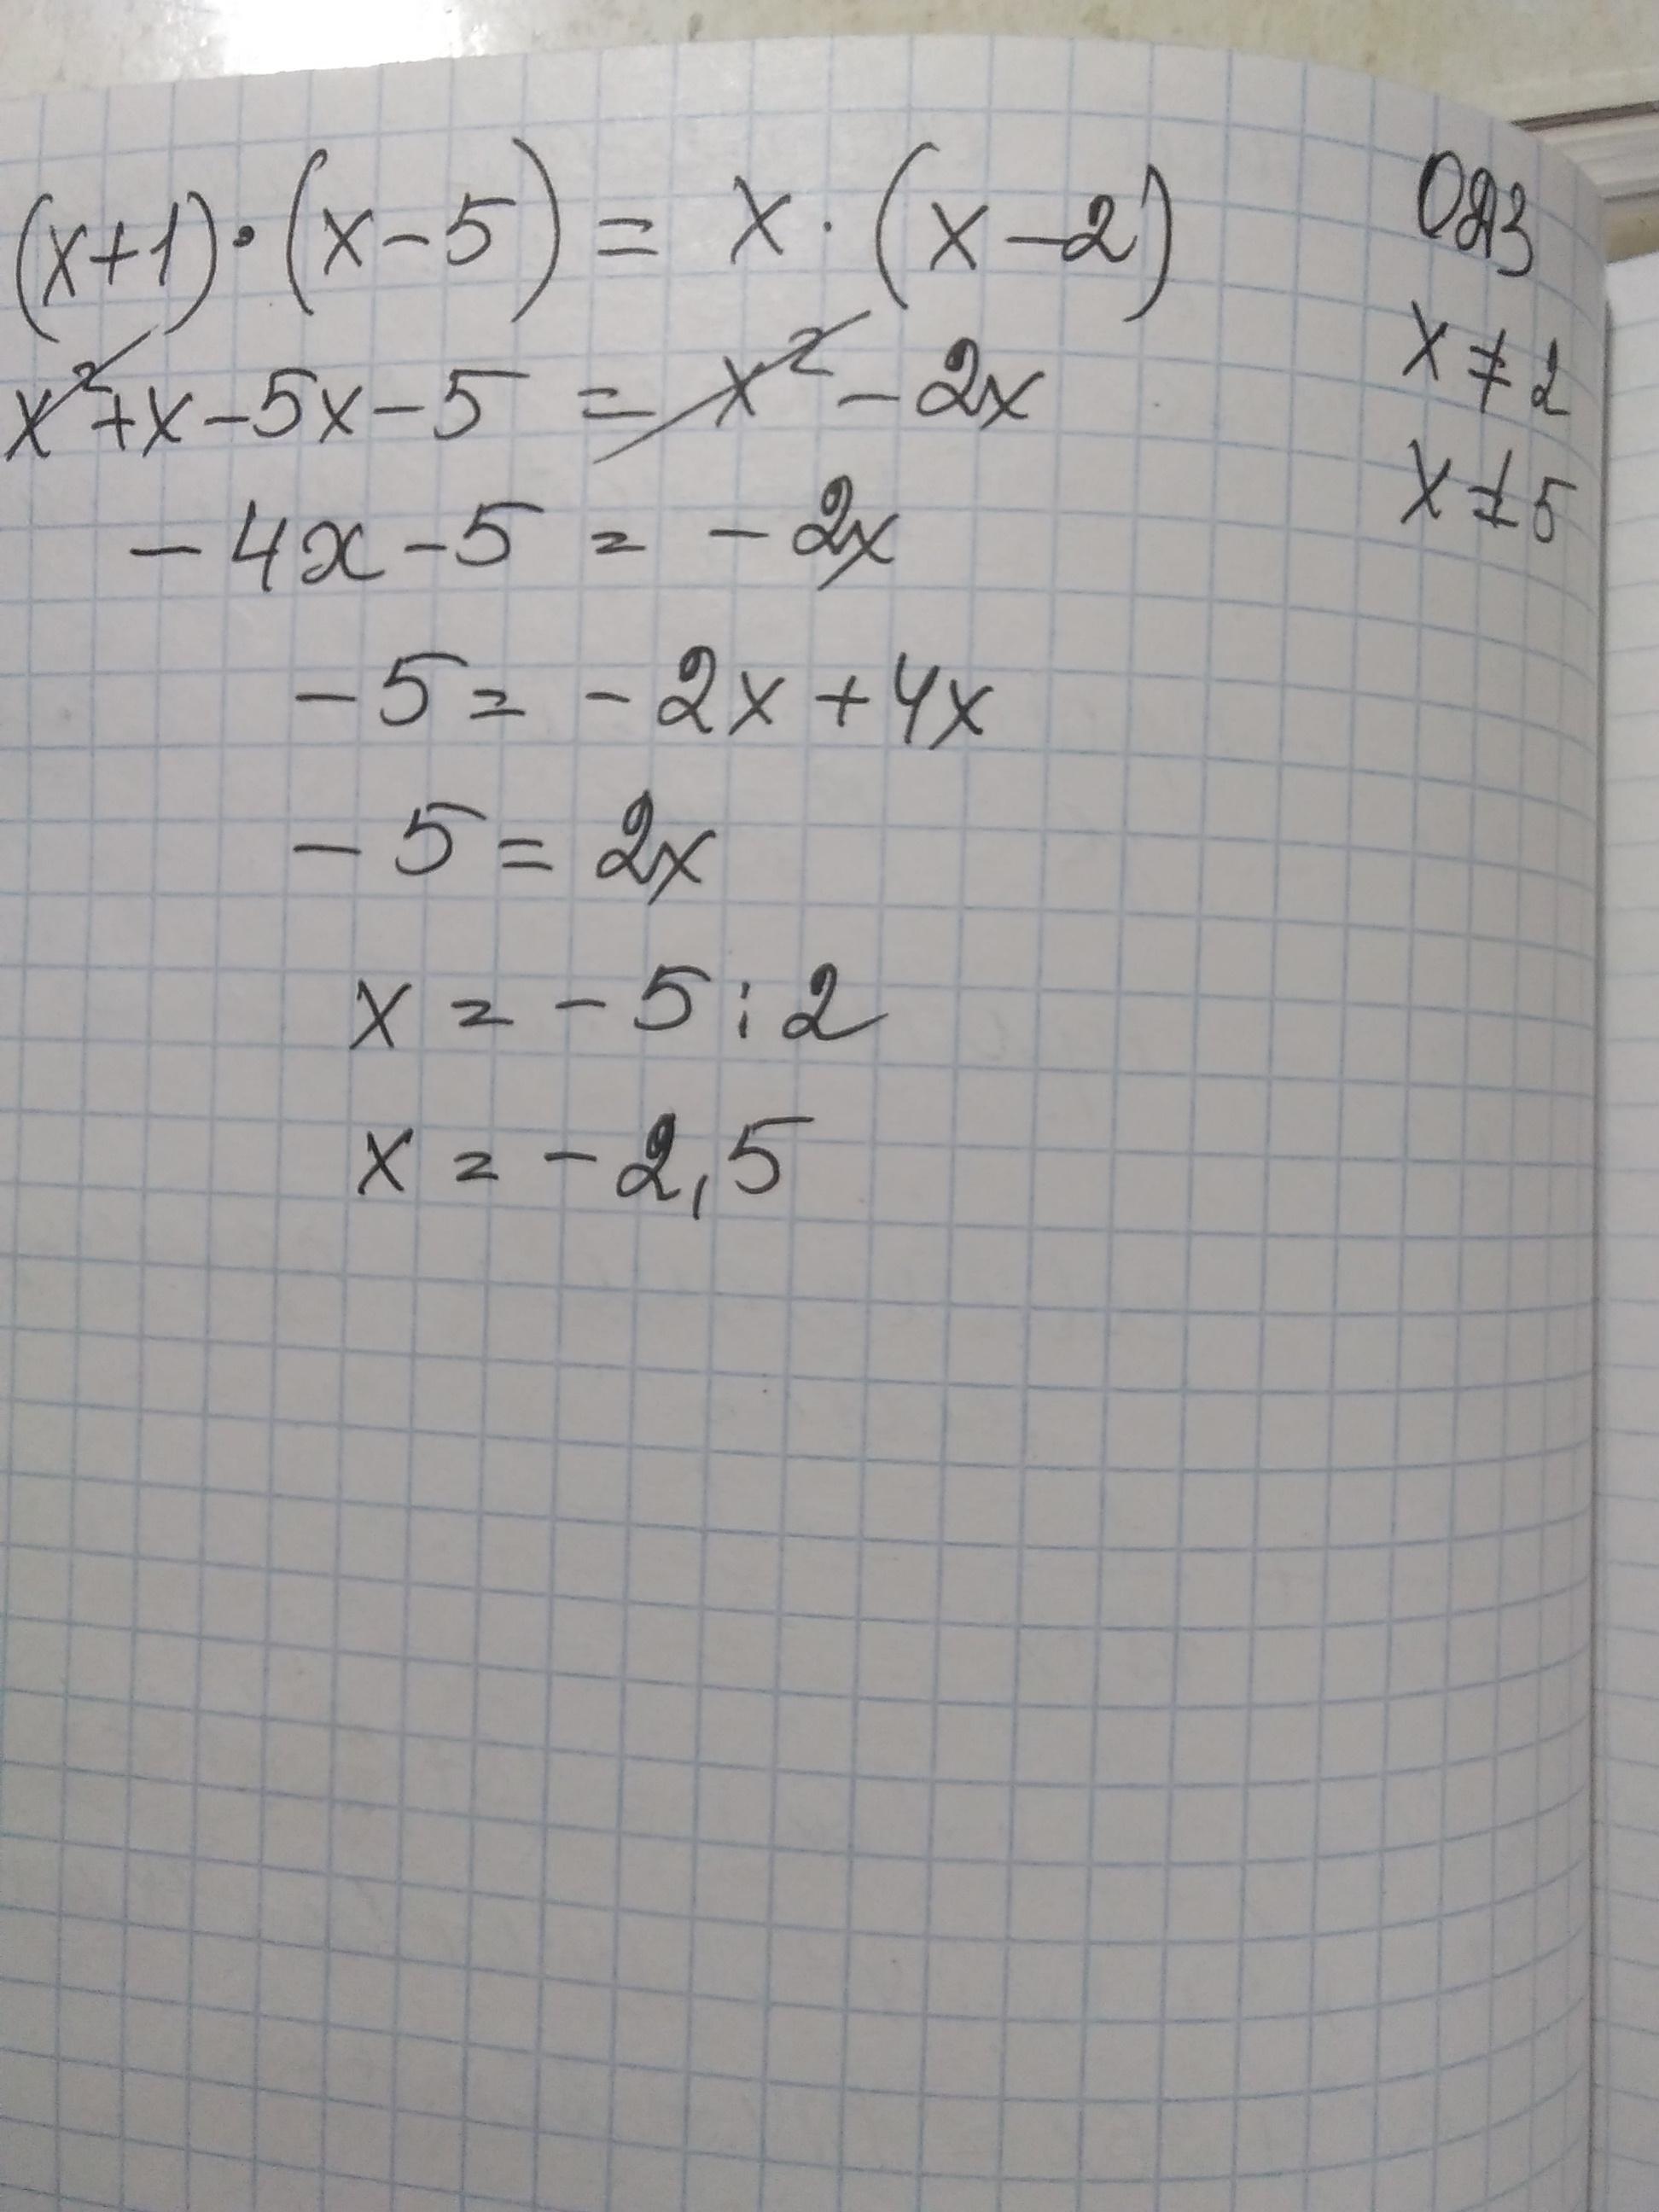 (x+1)·(x-5) = x·(x-2)
x²+x-5x-5 = x²-2x
-4x-5 = -2x
-5 = -2x+4x
-5 = 2x
x = -5:2
x = -2,5
ОДЗ
x ≠ 2
x ≠ 5